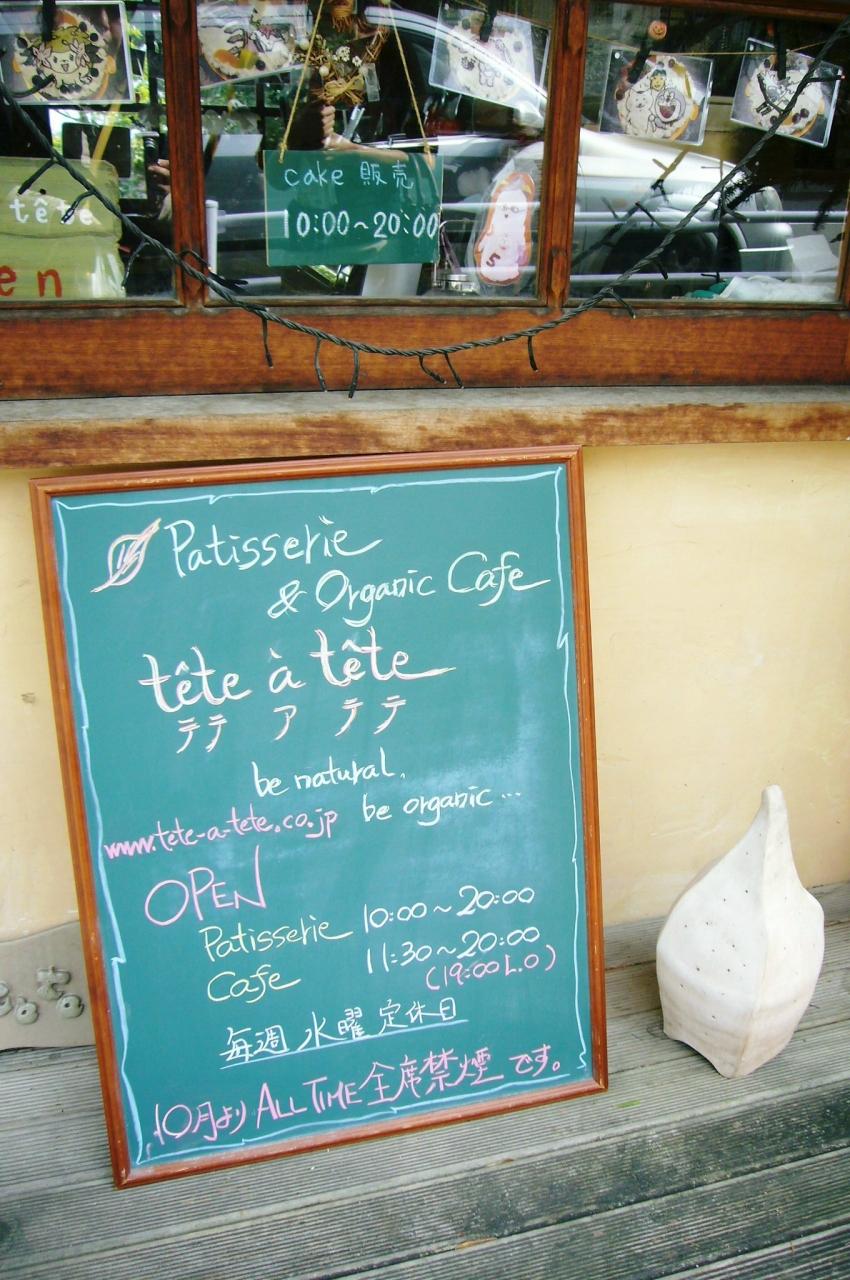 cake 販売
10:00~20:00
tête
en
5
Patisserie
& Organic Cafe
tête à tête
テテ ア テテ
be natural,
be organic...
www.tete-a-tete.co.jp
OPEN
Patisserie 10:00~20:00
Cafe 11:30~20:00
(19:00 L.O)
毎週 水曜 定休日
10月より ALL TIME 全席禁煙 です。